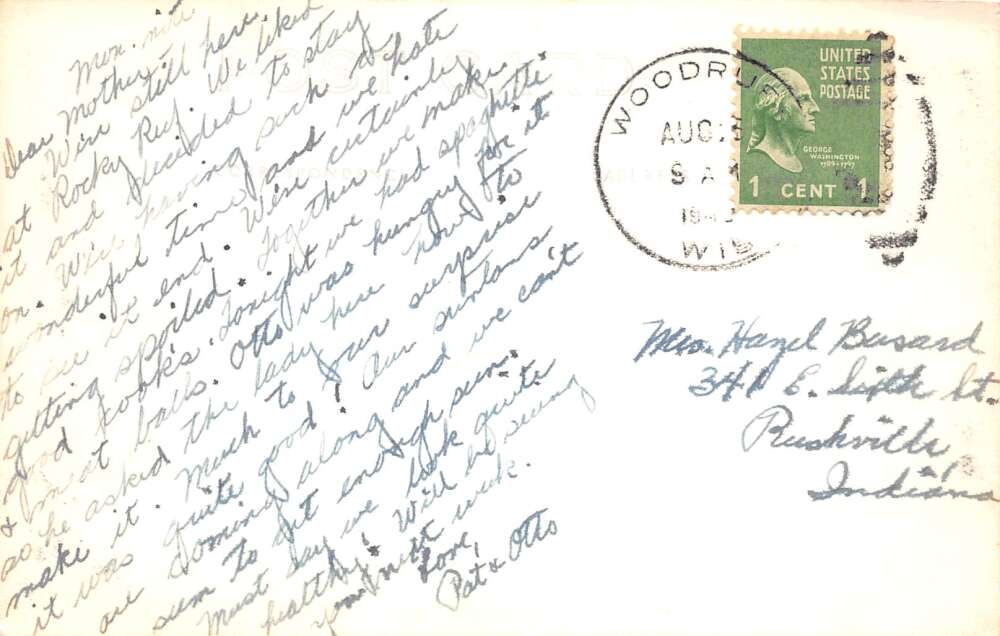 Mon. nite
Dear Mother,
We're still here
at Rocky Reef. We liked
it and decided to stay
on. We're having such a
wonderful time and we hate
to see it end. We're certainly
getting spoiled. Together we make
good cooks. Tonight we had spaghetti
& meat balls. Otto was hungry for it
so he asked the lady here how to
make it. Much to our surprise
it was quite good! Our suntans
are coming along and we can't
seem to get enough sun.
Must say we look quite
healthy! Will be seeing
you next week.
Love,
Pat & Otto
POST CARD
WOODRUFF
AUG
8 A
194
WIS
UNITED
STATES
POSTAGE
GEORGE
WASHINGTON
1789-1797
1 CENT 1
Mrs. Hazel Busard
341 E. Sixth St.
Rushville
Indiana